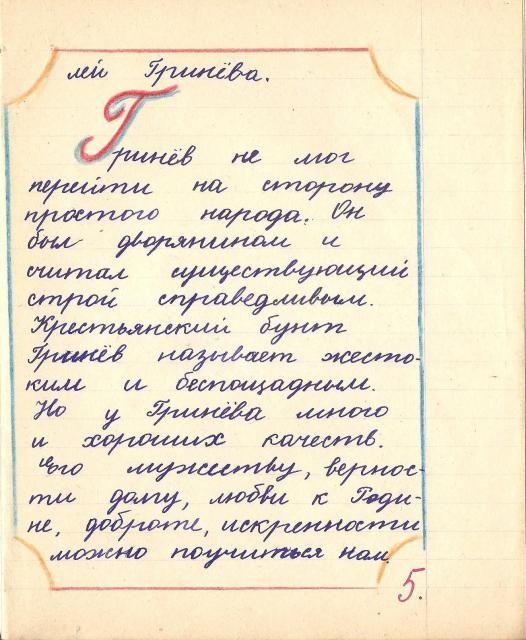 лей Гринёва.
Гринёв не мог
перейти на сторону
простого народа. Он
был дворянином и
считал существующий
строй справедливым.
Крестьянский бунт
Гринёв называет жесто-
ким и беспощадным.
Но у Гринёва много
и хороших качеств.
Его мужеству, вернос-
ти долгу, любви к Роди-
не, доброте, искренности
можно поучиться нам.
5.